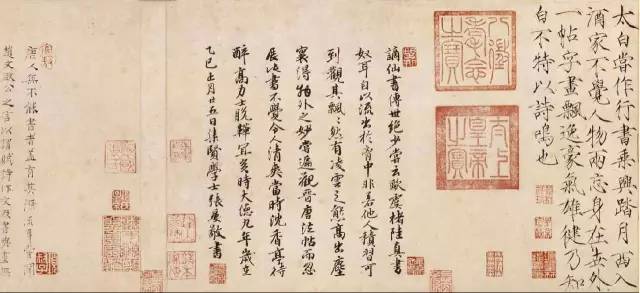 太白嘗作行書乘興踏月西入
酒家不覺人物兩忘身在世外
一帖字畫飄逸豪氣雄健乃知
白不特以詩鳴也
八徵耄念之寶
太上皇帝之寶
謫仙書傳世絕少嘗云歐虞褚陸真書
奴耳自以流出於胷中非若他人積習可
到觀其飄飄然有凌雲之態高出塵
寰得物外之妙嘗遍觀晉唐法帖而忽
展此書不覺令人清爽當時沈香亭待
醉高力士脫鞾宜矣時大德九年歲在
乙巳正月廿五日集賢學士張晏敬書
唐人無不能書者蓋其源流
趙文敏公之言以謂賦詩作文及書與畫無